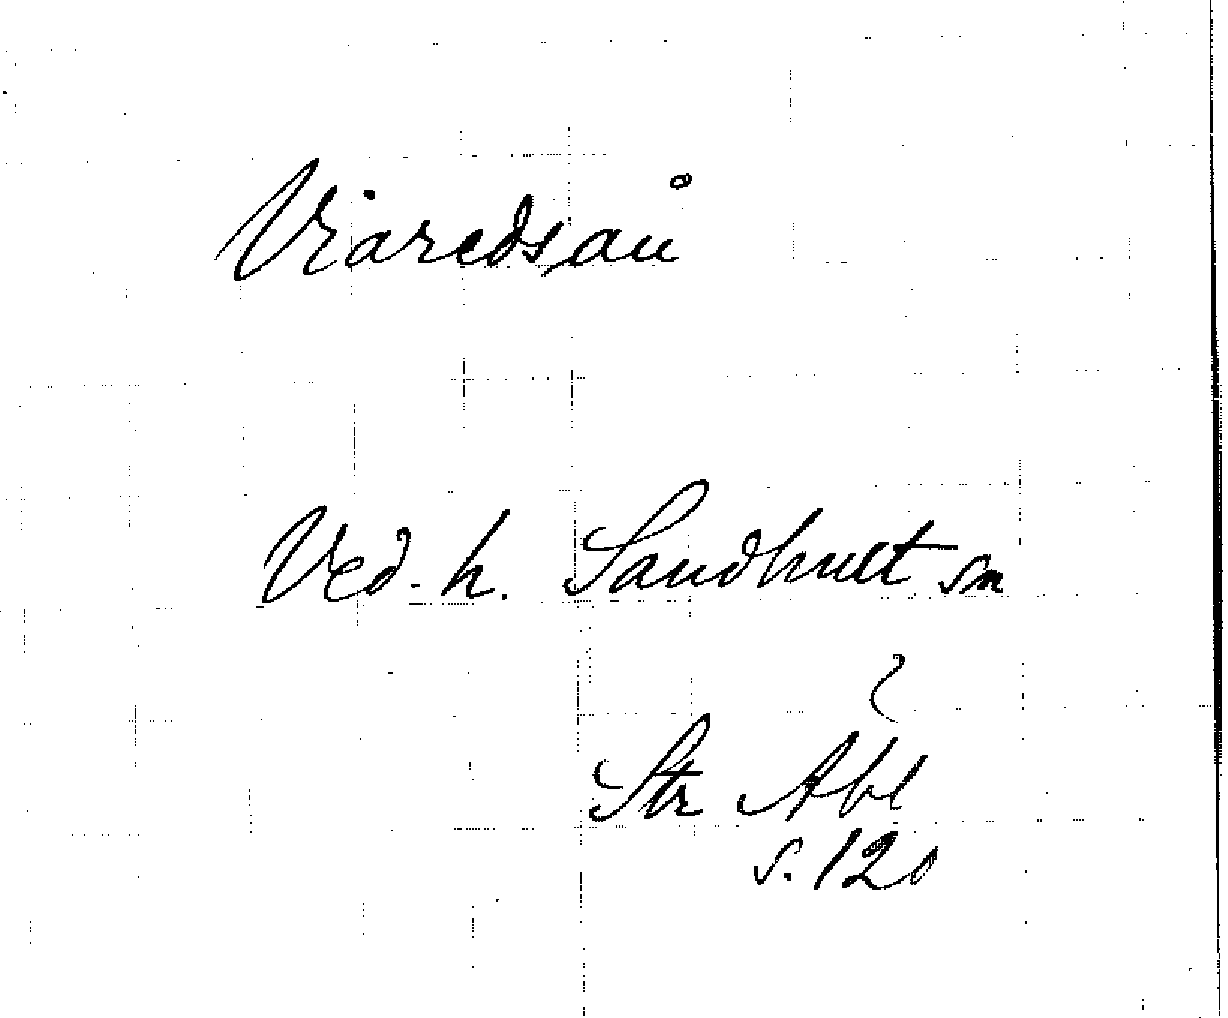 Viaredsån
Ved. h. Sandhult sn
Str Abl
s. 120